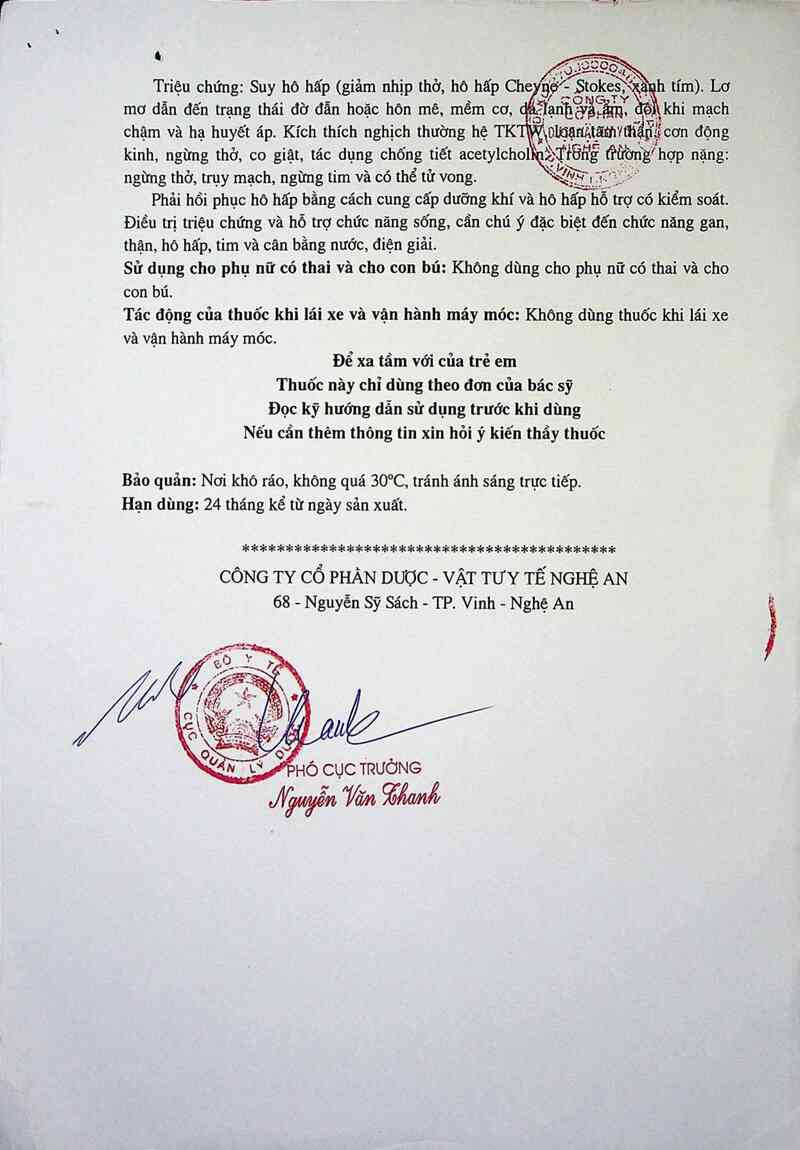 Triệu chứng: Suy hô hấp (giảm nhịp thở, hô hấp Cheyne - Stokes, xanh tím). Lơ
mơ dẫn đến trạng thái đờ đẫn hoặc hôn mê, mềm cơ, da lạnh và ẩm, đôi khi mạch
chậm và hạ huyết áp. Kích thích nghịch thường hệ TKTW, loạn tâm thần, cơn động
kinh, ngừng thở, co giật, tác dụng chống tiết acetylcholin. Trong trường hợp nặng:
ngừng thở, trụy mạch, ngừng tim và có thể tử vong.
Phải hồi phục hô hấp bằng cách cung cấp dưỡng khí và hô hấp hỗ trợ có kiểm soát.
Điều trị triệu chứng và hỗ trợ chức năng sống, cần chú ý đặc biệt đến chức năng gan,
thận, hô hấp, tim và cân bằng nước, điện giải.
Sử dụng cho phụ nữ có thai và cho con bú: Không dùng cho phụ nữ có thai và cho
con bú.
Tác động của thuốc khi lái xe và vận hành máy móc: Không dùng thuốc khi lái xe
và vận hành máy móc.
Để xa tầm với của trẻ em
Thuốc này chỉ dùng theo đơn của bác sỹ
Đọc kỹ hướng dẫn sử dụng trước khi dùng
Nếu cần thêm thông tin xin hỏi ý kiến thầy thuốc
Bảo quản: Nơi khô ráo, không quá 30°C, tránh ánh sáng trực tiếp.
Hạn dùng: 24 tháng kể từ ngày sản xuất.
*******************************************
CÔNG TY CỔ PHẦN DƯỢC - VẬT TƯ Y TẾ NGHỆ AN
68 - Nguyễn Sỹ Sách - TP. Vinh - Nghệ An
BỘ Y TẾ
CỤC QUẢN LÝ DƯỢC
PHÓ CỤC TRƯỞNG
Nguyễn Văn Thanh